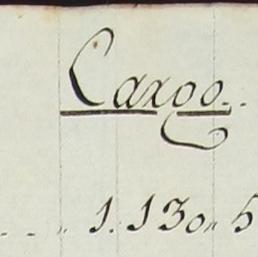 Cargo..
... 1.130„5